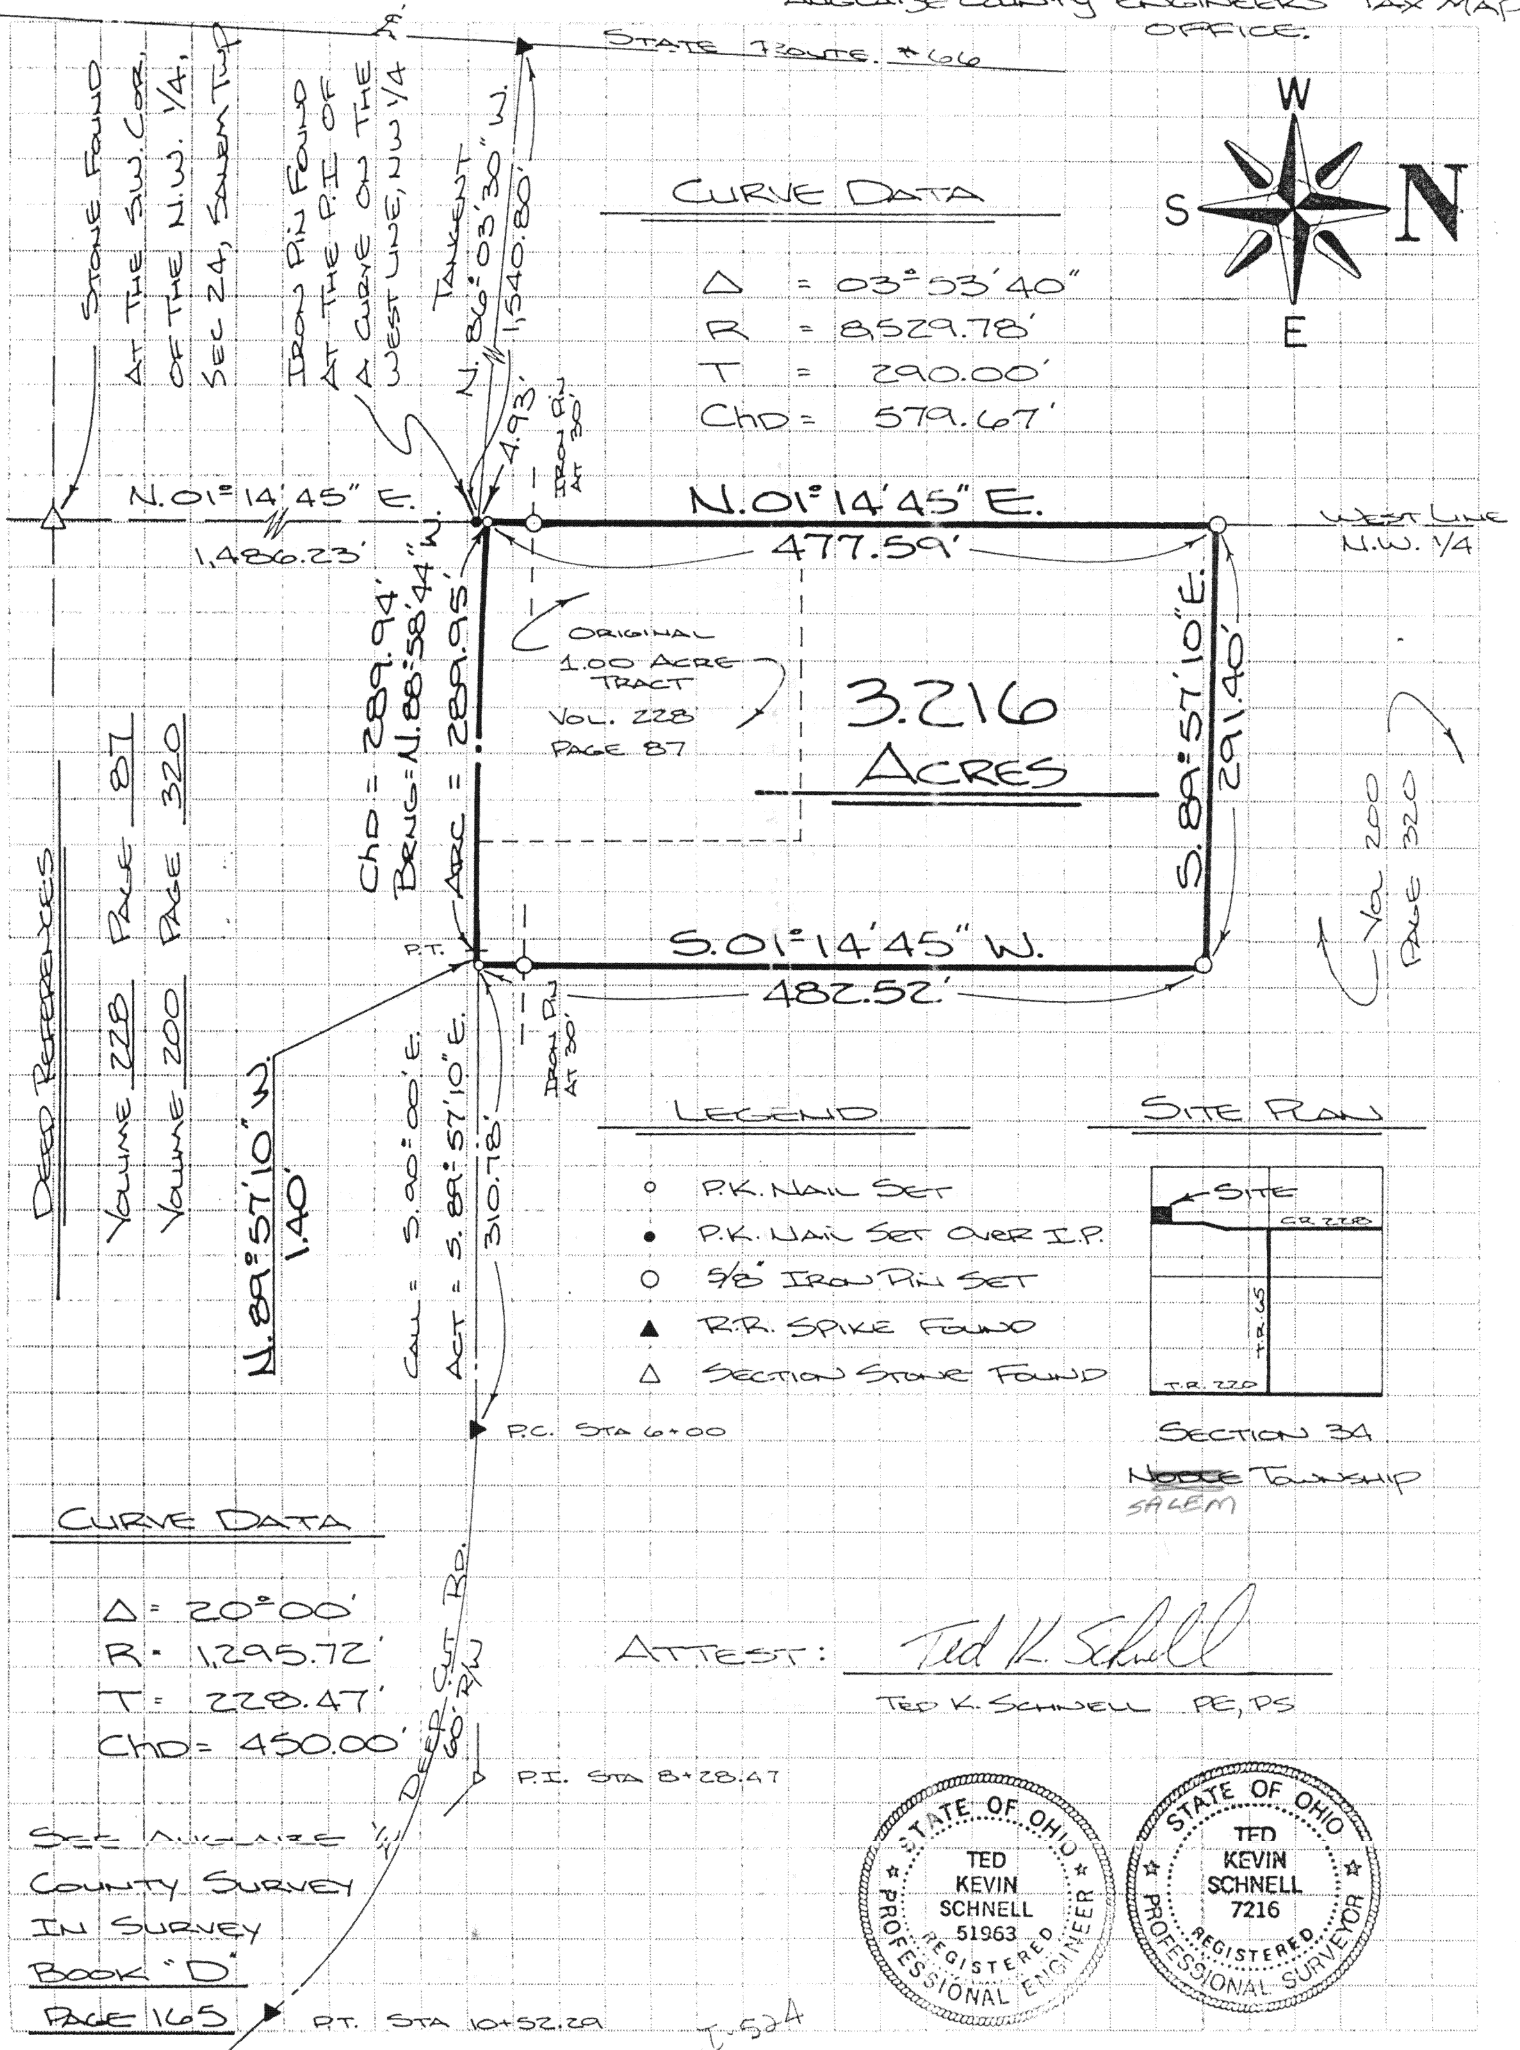 AUGLAIZE COUNTY ENGINEERS TAX MAP
OFFICE.
STATE ROUTE #66
STONE FOUND
AT THE S.W. COR,
OF THE N.W. 1/4,
SEC 24, SALEM TWP
IRON PIN FOUND
AT THE P.I. OF
A CURVE ON THE
WEST LINE, NW 1/4
TANGENT
N. 86°03'30" W.
1,540.80'
4.93'
IRON PIN
AT 30'
CURVE DATA
Δ = 03°53'40"
R = 8,529.78'
T = 290.00'
CHD = 579.67'
W
S
N
E
N.01°14'45" E.
1,486.23'
N.01°14'45" E.
477.59'
WEST LINE
N.W. 1/4
CHD = 289.94'
BRNG = N.88°58'44" W.
ARC = 289.95'
ORIGINAL
1.00 ACRE
TRACT
VOL. 228
PAGE 87
3.216
ACRES
S.89°57'10"E.
291.40'
VOL 200
PAGE 320
DEED REFERENCES
VOLUME 228 PAGE 87
VOLUME 200 PAGE 320
P.T.
S.01°14'45" W.
482.52'
IRON PIN
AT 30'
N.89°57'10" W.
1.40'
CALL = S.90°00' E.
ACT = S.89°57'10" E.
310.78'
LEGEND
P.K. NAIL SET
P.K. NAIL SET OVER I.P.
5/8" IRON PIN SET
R.R. SPIKE FOUND
SECTION STONE FOUND
SITE PLAN
SITE
C.R. 228
T.R. 65
T.R. 220
SECTION 34
NOBLE TOWNSHIP
SALEM
P.C. STA 6+00
CURVE DATA
Δ = 20°00'
R = 1,295.72'
T = 228.47'
CHD = 450.00'
DEEP CUT RD.
60' R/W
P.I. STA 8+28.47
SEE AUGLAIZE
COUNTY SURVEY
IN SURVEY
BOOK "D"
PAGE 165
P.T. STA 10+52.29
ATTEST: Ted K. Schnell
TED K. SCHNELL PE, PS
STATE OF OHIO
TED
KEVIN
SCHNELL
51963
REGISTERED
PROFESSIONAL ENGINEER
STATE OF OHIO
TED
KEVIN
SCHNELL
7216
REGISTERED
PROFESSIONAL SURVEYOR
I-524